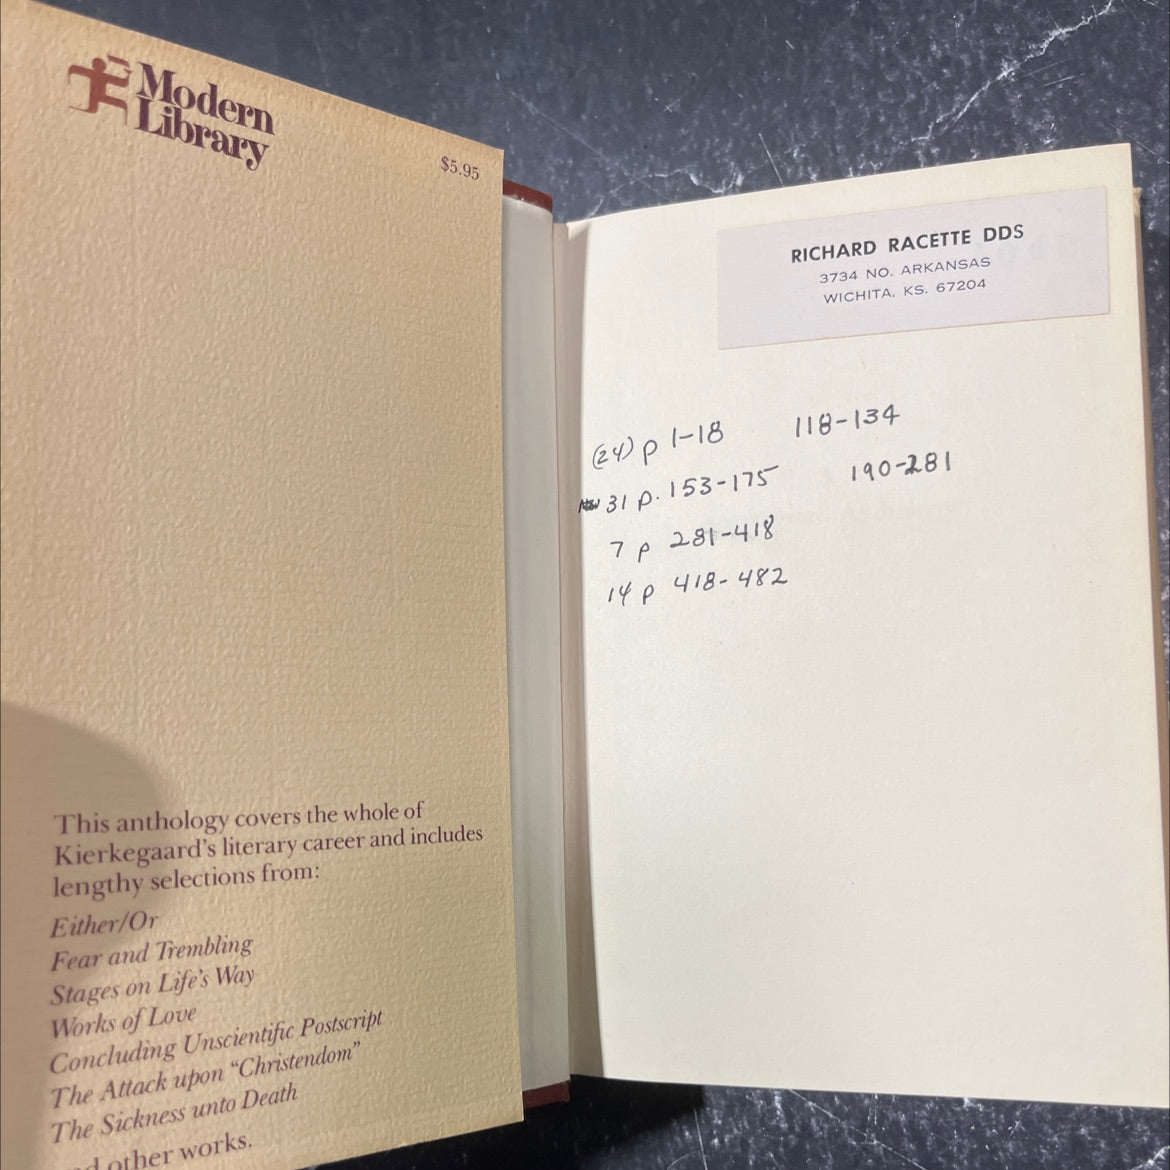 Modern
Library
$5.95
This anthology covers the whole of
Kierkegaard's literary career and includes
lengthy selections from:
Either/Or
Fear and Trembling
Stages on Life's Way
Works of Love
Concluding Unscientific Postscript
The Attack upon "Christendom"
The Sickness unto Death
other works.
RICHARD RACETTE DDS
3734 NO. ARKANSAS
WICHITA, KS. 67204
(24) p 1-18 118-134
31 p. 153-175 190-281
7 p 281-418
14 p 418-482